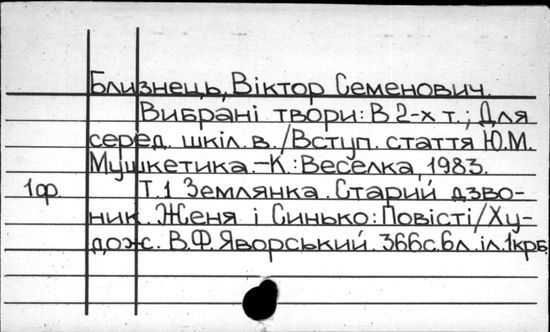 Близнець, Віктор Семенович.
Вибрані твори: В 2-х т.; Для
серед. шкіл. в. / Вступ. стаття Ю.М.
Мушкетика. – К.: Веселка, 1983.
1ф. Т.1 Землянка. Старий дзво-
ник. Женя і Синько: Повісті / Ху-
дож. В.Ф. Яворський. 366с. 6л. іл. 1крб.